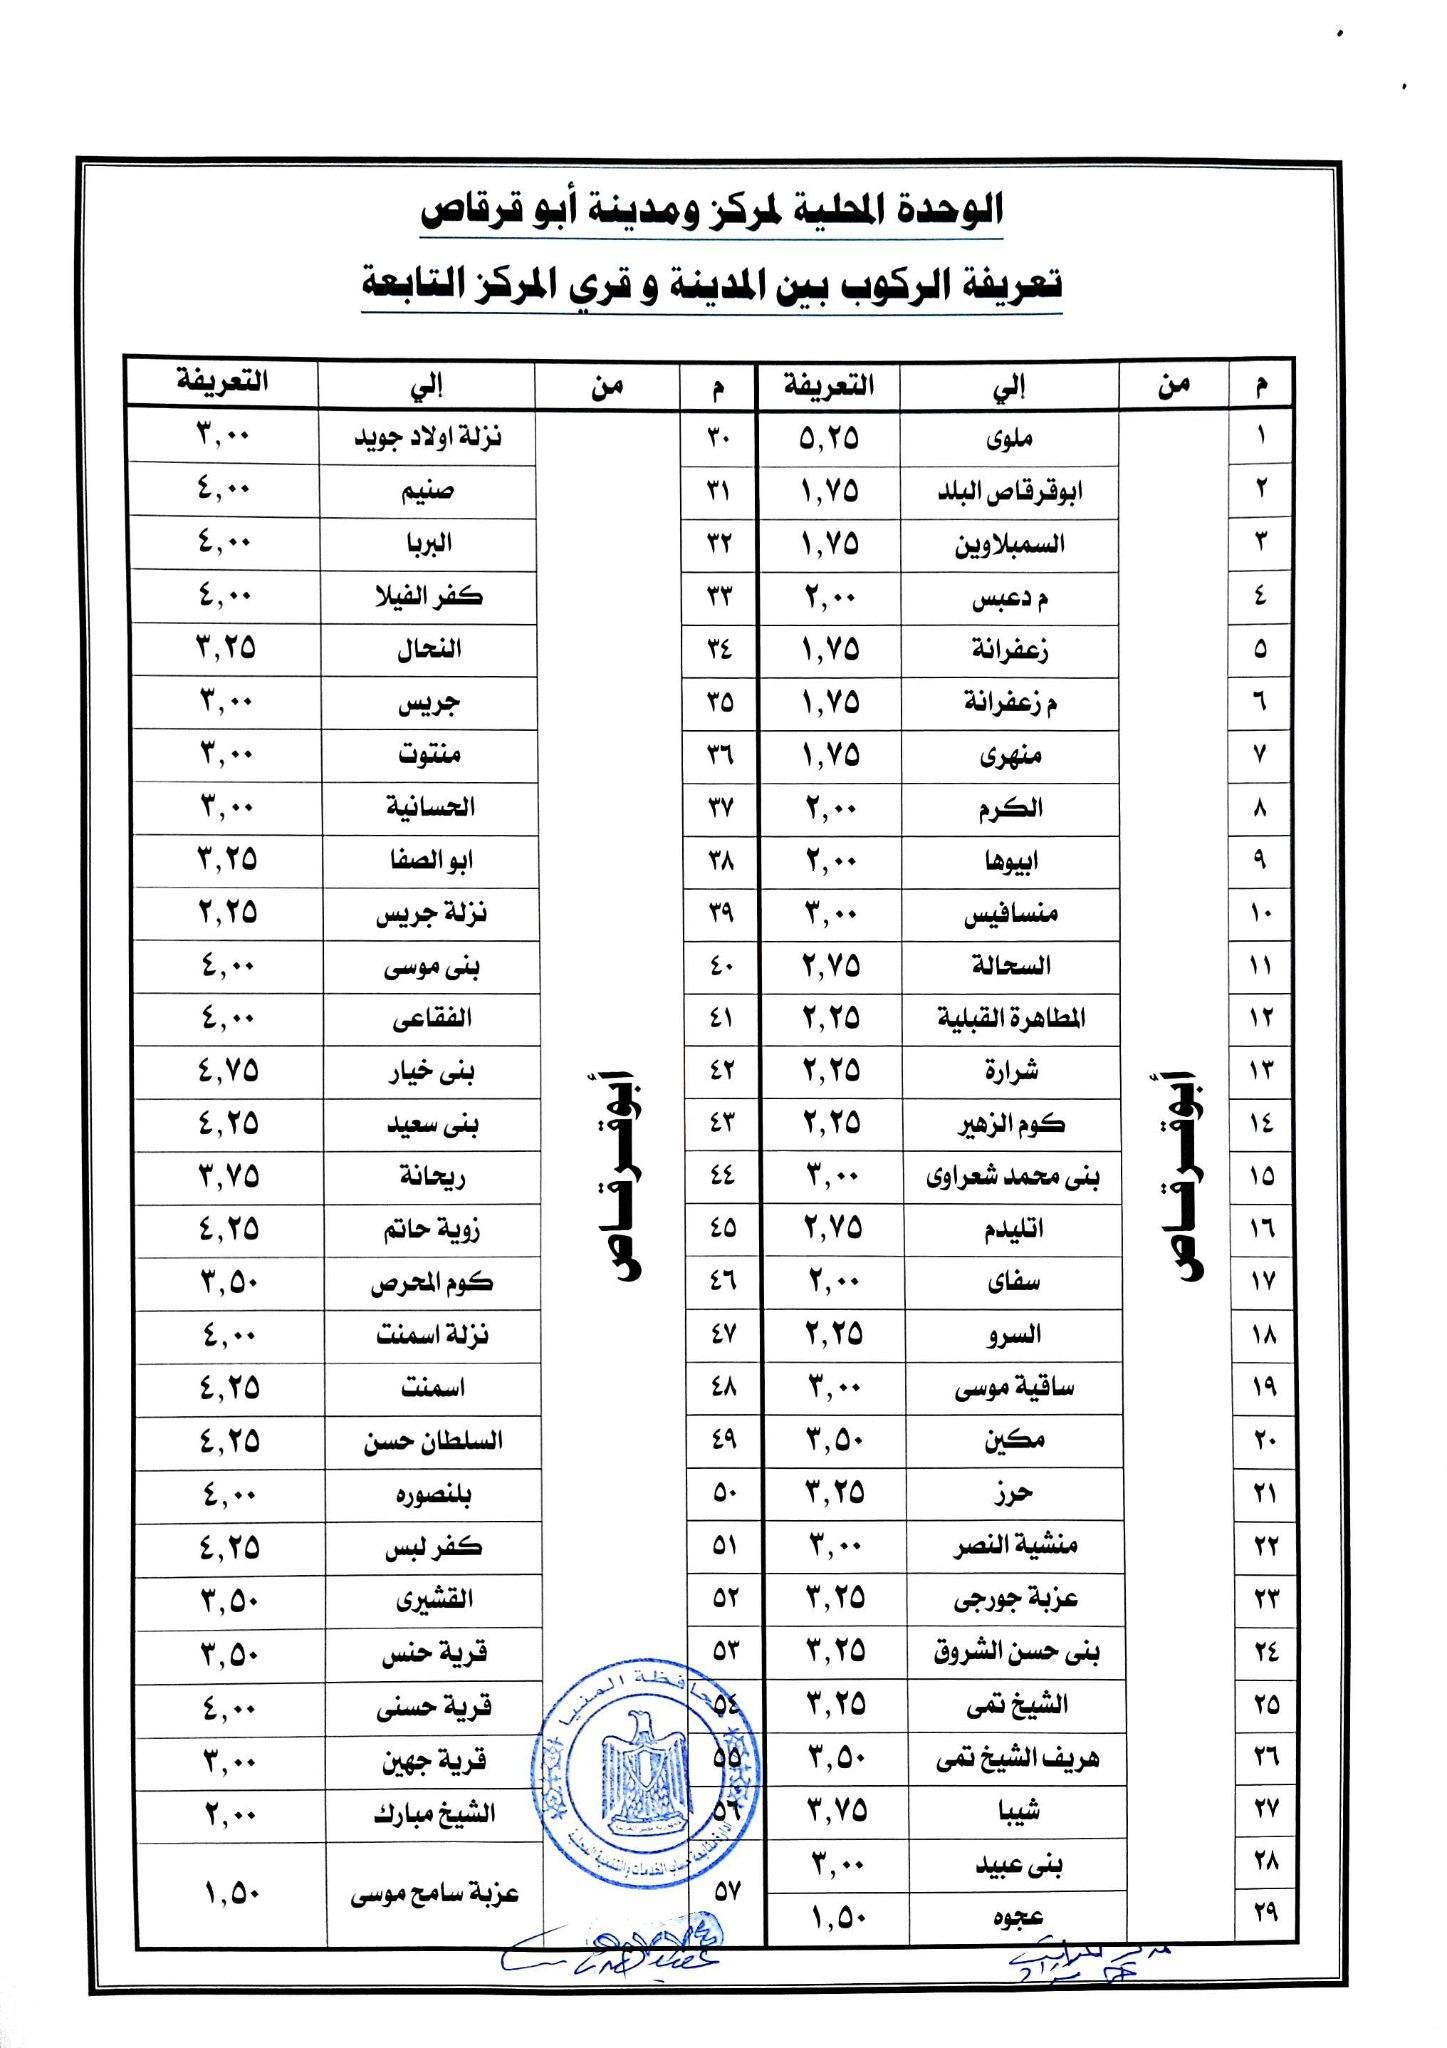 الوحدة المحلية لمركز ومدينة أبو قرقاص
تعريفة الركوب بين المدينة و قري المركز التابعة
م من إلي التعريفة م من إلي التعريفة
١ ملوى ٥,٢٥ ٣٠ نزلة اولاد جويد ٣,٠٠
٢ ابوقرقاص البلد ١,٧٥ ٣١ صنيم ٤,٠٠
٣ السمبلاوين ١,٧٥ ٣٢ البربا ٤,٠٠
٤ م دعبس ٢,٠٠ ٣٣ كفر الفيلا ٤,٠٠
٥ زعفرانة ١,٧٥ ٣٤ النحال ٣,٢٥
٦ م زعفرانة ١,٧٥ ٣٥ جريس ٣,٠٠
٧ منهرى ١,٧٥ ٣٦ منتوت ٣,٠٠
٨ الكرم ٢,٠٠ ٣٧ الحسانية ٣,٠٠
٩ ابيوها ٢,٠٠ ٣٨ ابو الصفا ٣,٢٥
١٠ منسافيس ٣,٠٠ ٣٩ نزلة جريس ٢,٢٥
١١ السحالة ٢,٧٥ ٤٠ بنى موسى ٤,٠٠
١٢ المطاهرة القبلية ٢,٢٥ ٤١ الفقاعى ٤,٠٠
١٣ شرارة ٢,٢٥ ٤٢ بنى خيار ٤,٧٥
أبوقرقاص أبوقرقاص
١٤ كوم الزهير ٢,٢٥ ٤٣ بنى سعيد ٤,٢٥
١٥ بنى محمد شعراوى ٣,٠٠ ٤٤ ريحانة ٣,٧٥
١٦ اتليدم ٢,٧٥ ٤٥ زوية حاتم ٤,٢٥
١٧ سفاى ٢,٠٠ ٤٦ كوم المحرص ٣,٥٠
١٨ السرو ٢,٢٥ ٤٧ نزلة اسمنت ٤,٠٠
١٩ ساقية موسى ٣,٠٠ ٤٨ اسمنت ٤,٢٥
٢٠ مكين ٣,٥٠ ٤٩ السلطان حسن ٤,٢٥
٢١ حرز ٣,٢٥ ٥٠ بلنصوره ٤,٠٠
٢٢ منشية النصر ٣,٠٠ ٥١ كفر لبس ٤,٢٥
٢٣ عزبة جورجى ٣,٢٥ ٥٢ القشيرى ٣,٥٠
٢٤ بنى حسن الشروق ٣,٢٥ ٥٣ قرية حنس ٣,٥٠
٢٥ الشيخ تمى ٣,٢٥ ٥٤ قرية حسنى ٤,٠٠
٢٦ هريف الشيخ تمى ٣,٥٠ ٥٥ قرية جهين ٣,٠٠
٢٧ شيبا ٣,٧٥ ٥٦ الشيخ مبارك ٢,٠٠
٢٨ بنى عبيد ٣,٠٠ ٥٧ عزبة سامح موسى ١,٥٠
٢٩ عجوه ١,٥٠
محافظة المنيا